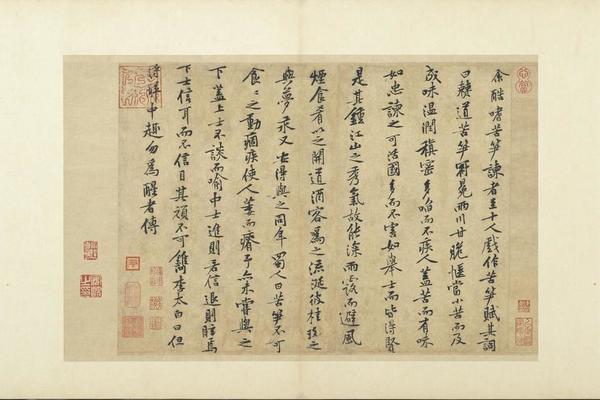 余酷嗜苦筍諫者至十人戲作苦筍賦其詞
曰僰道苦筍冠冕兩川甘脆愜當小苦而反
成味溫潤稹密多啗而不疾人蓋苦而有味
如忠諫之可活國多而不害如舉士而皆得賢
是其鍾江山之秀氣故能深雨露而避風
煙食肴以之開道酒客為之流涎彼桂玫之
與夢汞又安得與之同年蜀人曰苦筍不可
食食之動痼疾使人萎而瘠予亦未嘗與之
下蓋上士不談而喻中士進則若信退則眩焉
下士信耳而不信目其頑不可鐫李太白曰但
得醉中趣勿為醒者傳